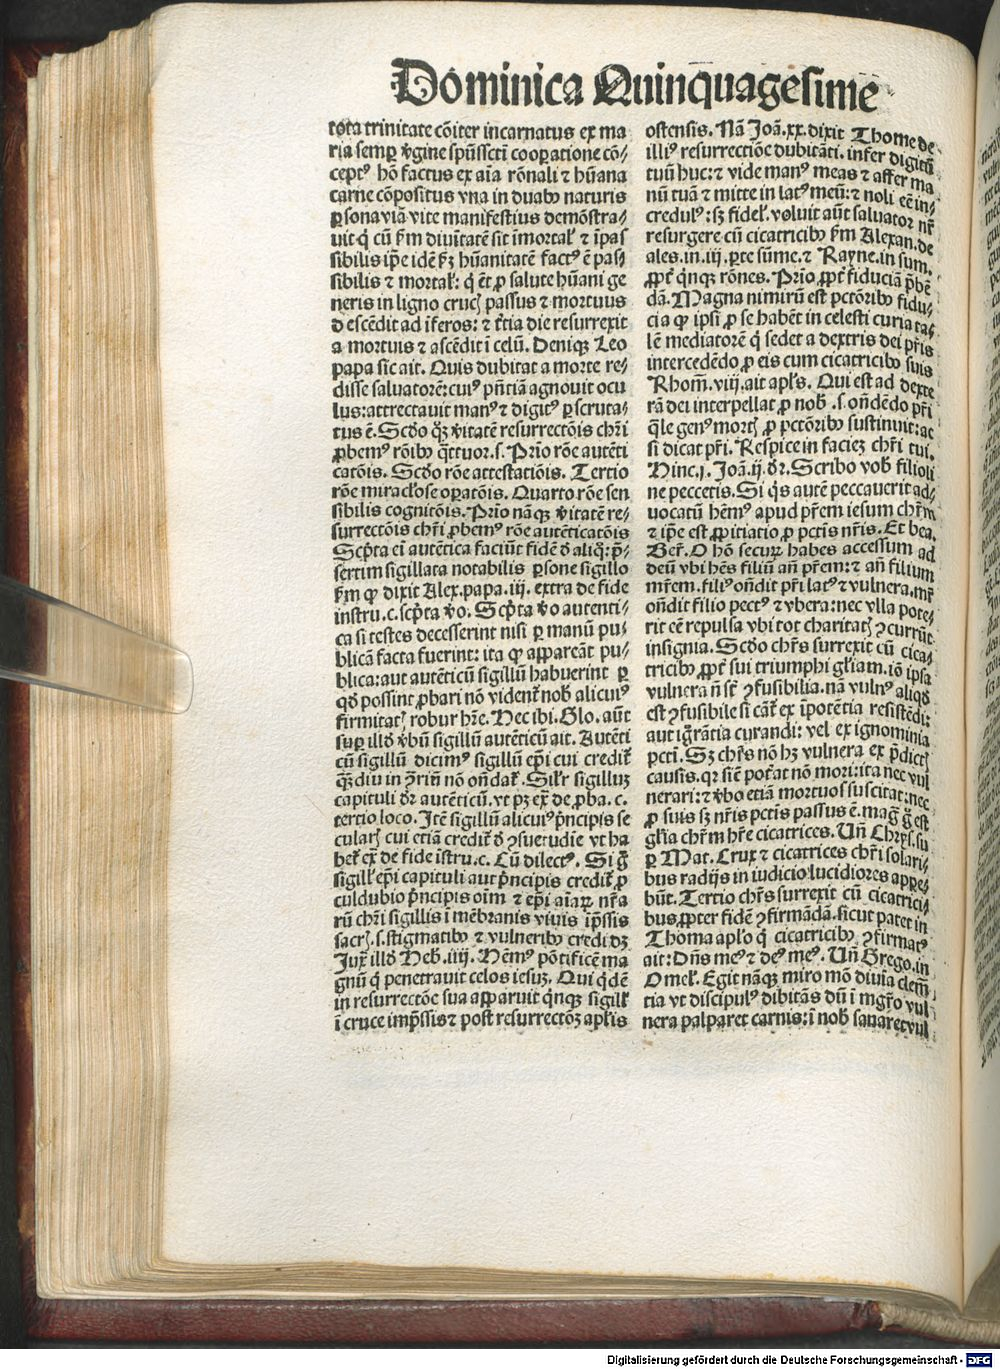 Dominica Quinquagesime
tota trinitate cōiter incarnatus ex ma
ria semꝑ v̄gine spūssctī cooꝑatione cō-
ceptꝰ hō factus ex aīa rōnali ⁊ hūana
carne cōpositus vna in duabꝰ naturis
ꝑsona viā vite manifestius demōstra-
uit q̇ cū ẜm diuītatē sit īmortał ⁊ īpas
sibilis ip̄e idē ẜꝫ hūanitatē factꝰ ē pas-
sibilis ⁊ mortał: q̇ ēt ꝓ salute hūani ge
neris in ligno cruc̄ passus ⁊ mortuus
d̄escēdit ad īferos: ⁊ t̄tia die resurrexit
a mortuis ⁊ ascēdit ī celū. Deniqꝫ Leo
papa sic ait. Quis dubitat a morte re-
disse saluatorē: cuiꝰ pn̄tiā agnouit ocu
lus: attrectauit manꝰ ⁊ digitꝰ ꝑscruta-
tus ē. Scd̄o q̄ꝫ v̄itatē resurrectōis chr̄i
ꝓbemꝰ rōibꝰ q̄ttuor. s. Prīo rōe autēti
catōis. Scd̄o rōe attestatiōis. Tertio
rōe miraclōse oꝑatōis. Quarto rōe sen
sibilis cognitōis. Prīo nāqꝫ v̄itatē re-
surrectōis chr̄i ꝓbemꝰ rōe autēticatōis
Scp̄ta eī autētica faciūt fidē d̄ aliq̇: p̄-
sertim sigillata notabilis ꝑsone sigillo
ẜm ꝙ dixit Alex. papa. iij. extra de fide
instru. c. scp̄ta v̄o. Scp̄ta v̄o autenti-
ca si testes decesserint nisi ꝑ manū pu-
blicā facta fuerint: ita ꝙ appareāt pu-
blica: aut autēticū sigillū habuerint ꝑ
qd̄ possint ꝓbari nō vident̄ nob̄ alicuiꝰ
firmitat̄ robur hr̄e. Hec ibi. Glo. aūt
suꝑ illd̄ v̄bū sigillū autēticū ait. Autēti
cū sigillū dicimꝰ sigillū ep̄i cui credit̄
q̄ꝫdiu in ꝯriū nō ondat̄. Silr̄ sigilluꝫ
capituli dr̄ autēticū. vt pꝫ ex̄ de ꝓba. c.
tertio loco. Itē sigillū alicuiꝰ pn̄cipis se
cular̄ cui etiā credit̄ d̄ ꝯsuetudīe vt ha
bet̄ ex̄ de fide īstru. c. Cū dilectꝰ. Si g̊
sigilł ep̄i capituli aut pn̄cipis credit̄ ꝓ
culdubio pn̄cipis oīm ⁊ ep̄i aīaꝝ nr̄a
rū chr̄i sigillis ī mēbranis viuis īp̄ssis
sacr̄. s. stigmatibꝰ ⁊ vulneribꝰ credi dꝫ
Jux̄ illd̄ Heb. iiij. Hēmꝰ pōtificē ma
gnū q̇ penetrauit celos iesuꝫ. Qui q̇dē
in resurrectōe sua apparuit q̇nqꝫ sigilł
ī cruce imp̄ssis ⁊ post resurrectōꝫ apl̄is
ostensis. Nā Joā. xx. dixit Thome de
illiꝰ resurrectiōe dubitāti. infer digitū
tuū huc: ⁊ vide manꝰ meas ⁊ affer ma
nū tuā ⁊ mitte in latꝰ meū: ⁊ noli eē in-
credulꝰ: sꝫ fidel̄. voluit aūt saluator nr̄
resurgere cū cicatricibꝰ ẜm Alexan. de
ales. in. iij. ꝑte sūme. ⁊ Rayne. in sum.
ꝓpt̄ q̇nqꝫ rōnes. Prīo ꝓpt̄ fiduciā p̄bē
dā. Magna nimirū est pctōribꝰ fidu-
cia ꝙ ipsi ꝓ se habēt in celesti curia ta-
lē mediatorē q̇ sedet a dextris dei pr̄is
intercedēdo ꝓ eis cum cicatricibꝰ suis
Rhom̄. viij. ait apl̄s. Qui est ad dexte
rā dei interpellat ꝓ nob̄. s. on̄dēdo pr̄i
q̄le genꝰ mort̄ ꝓ pctōribꝰ sustinuit: ac
si dicat pr̄i. Respice in faciez chr̄i tui.
Hinc. j. Joā. ij. dr̄. Scribo vob̄ filioli
ne peccetis. Si q̇s autē peccauerit ad-
uocatū hēmꝰ apud pr̄em iesum chr̄m
⁊ ip̄e est ꝓpitiatio ꝓ pctis nr̄is. Et bea.
Ber̄. O hō securꝫ habes accessum ad
deū vbi hēs filiū an̄ pr̄em: ⁊ an̄ filium
mr̄em. filiꝰ on̄dit pr̄i latꝰ ⁊ vulnera. mr̄
on̄dit filio pectꝰ ⁊ vbera: nec vlla pote-
rit eē repulsa vbi tot charitat̄ ꝯcurrūt
insignia. Scd̄o chr̄s surrexit cū cica-
tricibꝰ ꝓpt̄ sui triumphi gl̄iam. iō ipsa
vulnera n̄ st̄ ꝯfusibilia. nā vulnꝰ aliqd̄
est ꝯfusibile si cāt̄ ex īpotētia resistēdi:
aut igr̄antia curandi: vel ex ignominia
pcti. Sꝫ chr̄s nō hꝫ vulnera ex p̄dict̄
causis. qr siē pot̄at nō mori: ita nec vul
nerari: ⁊ v̄bo etiā mortuos suscitat: nec
ꝓ suis sꝫ nr̄is pctis passus ē. mag̊ g̊ est
gl̄ia chr̄m hr̄e cicatrices. Un̄ Chryṡ. su
ꝑ Mat. Crux ⁊ cicatrices chr̄i solari-
bus radijs in iudicio lucidiores appe-
būt. Tertio chr̄s surrexit cū cicatrici-
bus ꝓpter fidē ꝯfirmādā. sicut patet in
Thoma apl̄o q̇ cicatricibꝰ ꝯfirmatꝰ
ait: Dn̄s meꝰ ⁊ deꝰ meꝰ. Un̄ Grego. in
Omel̄. Egit nāqꝫ miro mō diuīa clem̄
tia vt discipulꝰ dibitās dū ī mgr̄o vul
nera palparet carnis: ī nob̄ sanaret vul
Digitalisierung gefördert durch die Deutsche Forschungsgemeinschaft - DFG